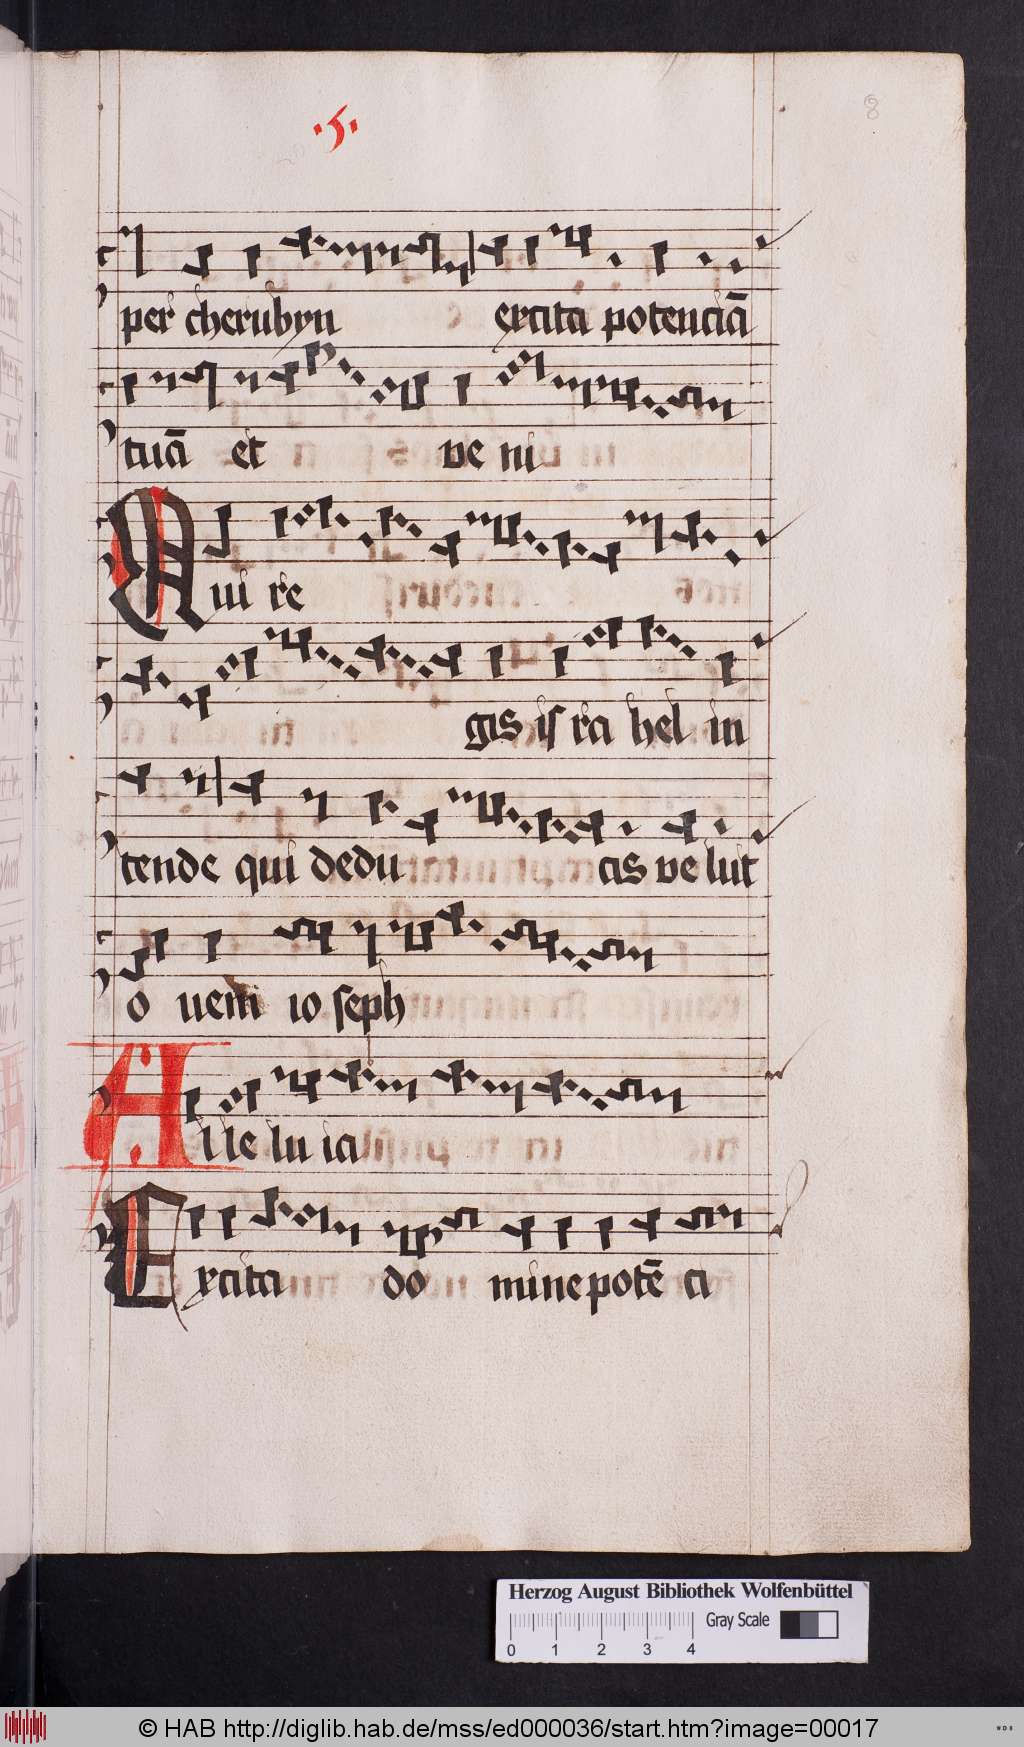 ·5·
8
per cherubyn excita potenciā
tuā et ve ni
Qui re
gis is ra hel in
tende qui dedu cis ve lut
o uem io seph
Alle lu ia
Excita do mine potē ci
Herzog August Bibliothek Wolfenbüttel
Gray Scale
0 1 2 3 4
© HAB http://diglib.hab.de/mss/ed000036/start.htm?image=00017